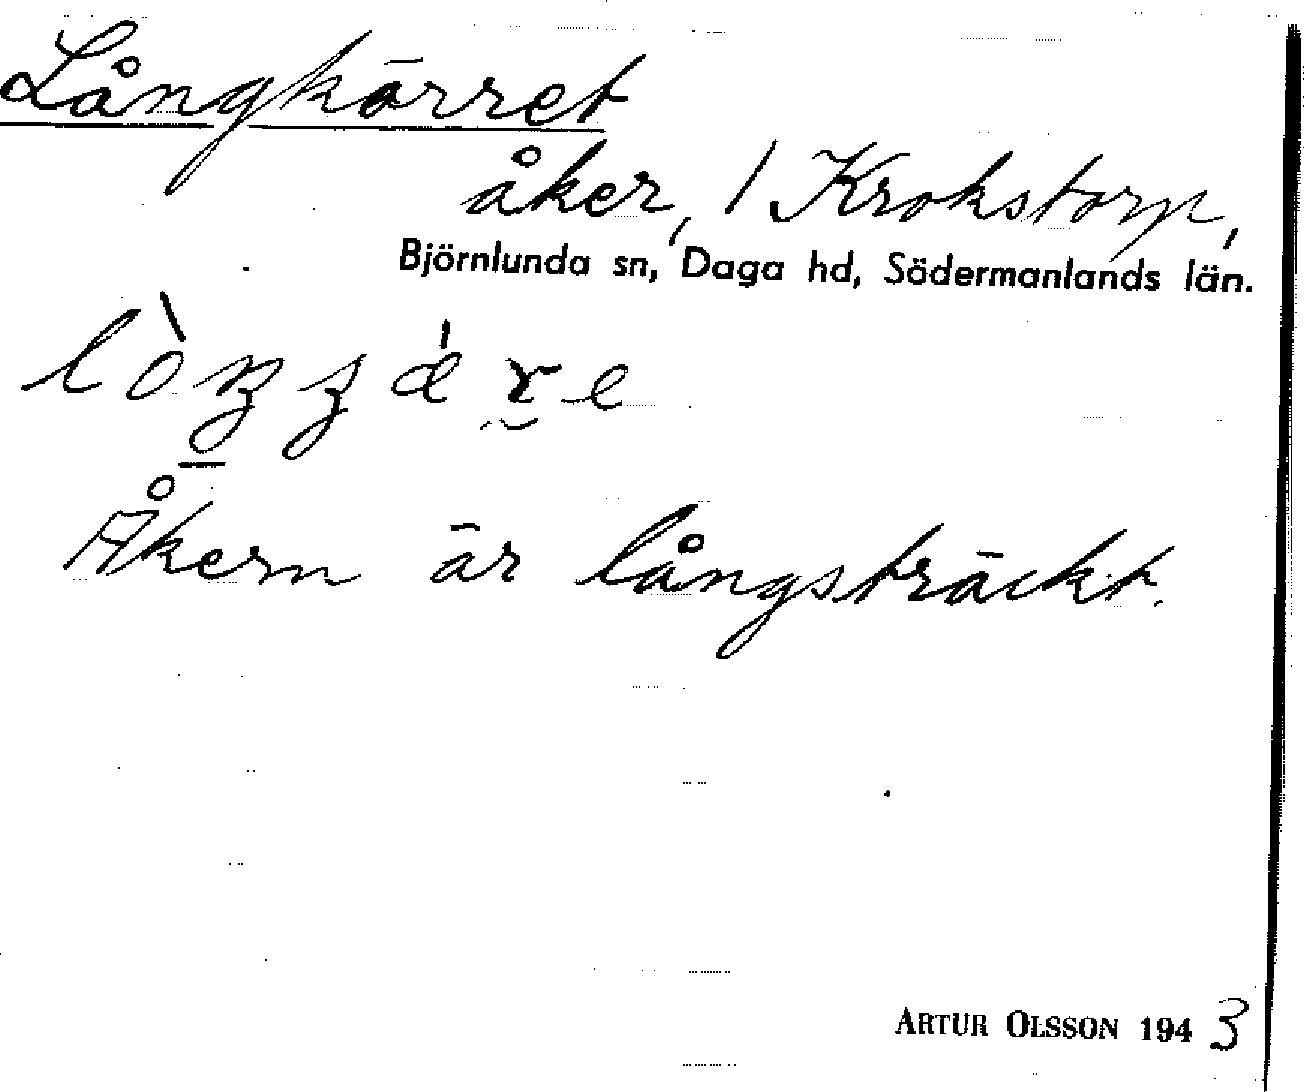 Långkärret
åker, 1 Krokstorp,
Björnlunda sn, Daga hd, Södermanlands län.
Åkern är långsträckt.
ARTUR OLSSON 1943